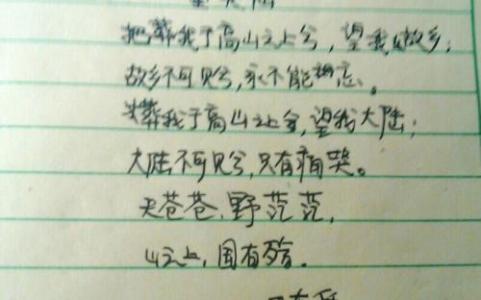 望大陆
把葬我于高山之上兮，望我故乡；
故乡不可见兮，永不能忘。
葬我于高山之上兮，望我大陆；
大陆不可见兮，只有痛哭。
天苍苍，野茫茫，
山之上，国有殇。